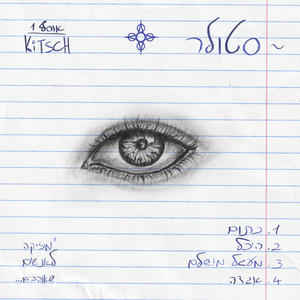 אוסף 1
KiTSCH
~ סטולר
1. כתום
2. היכל
3. מעגל מושלם
4. אגדה
"מוזיקה
לאנשים
שאוהבים...